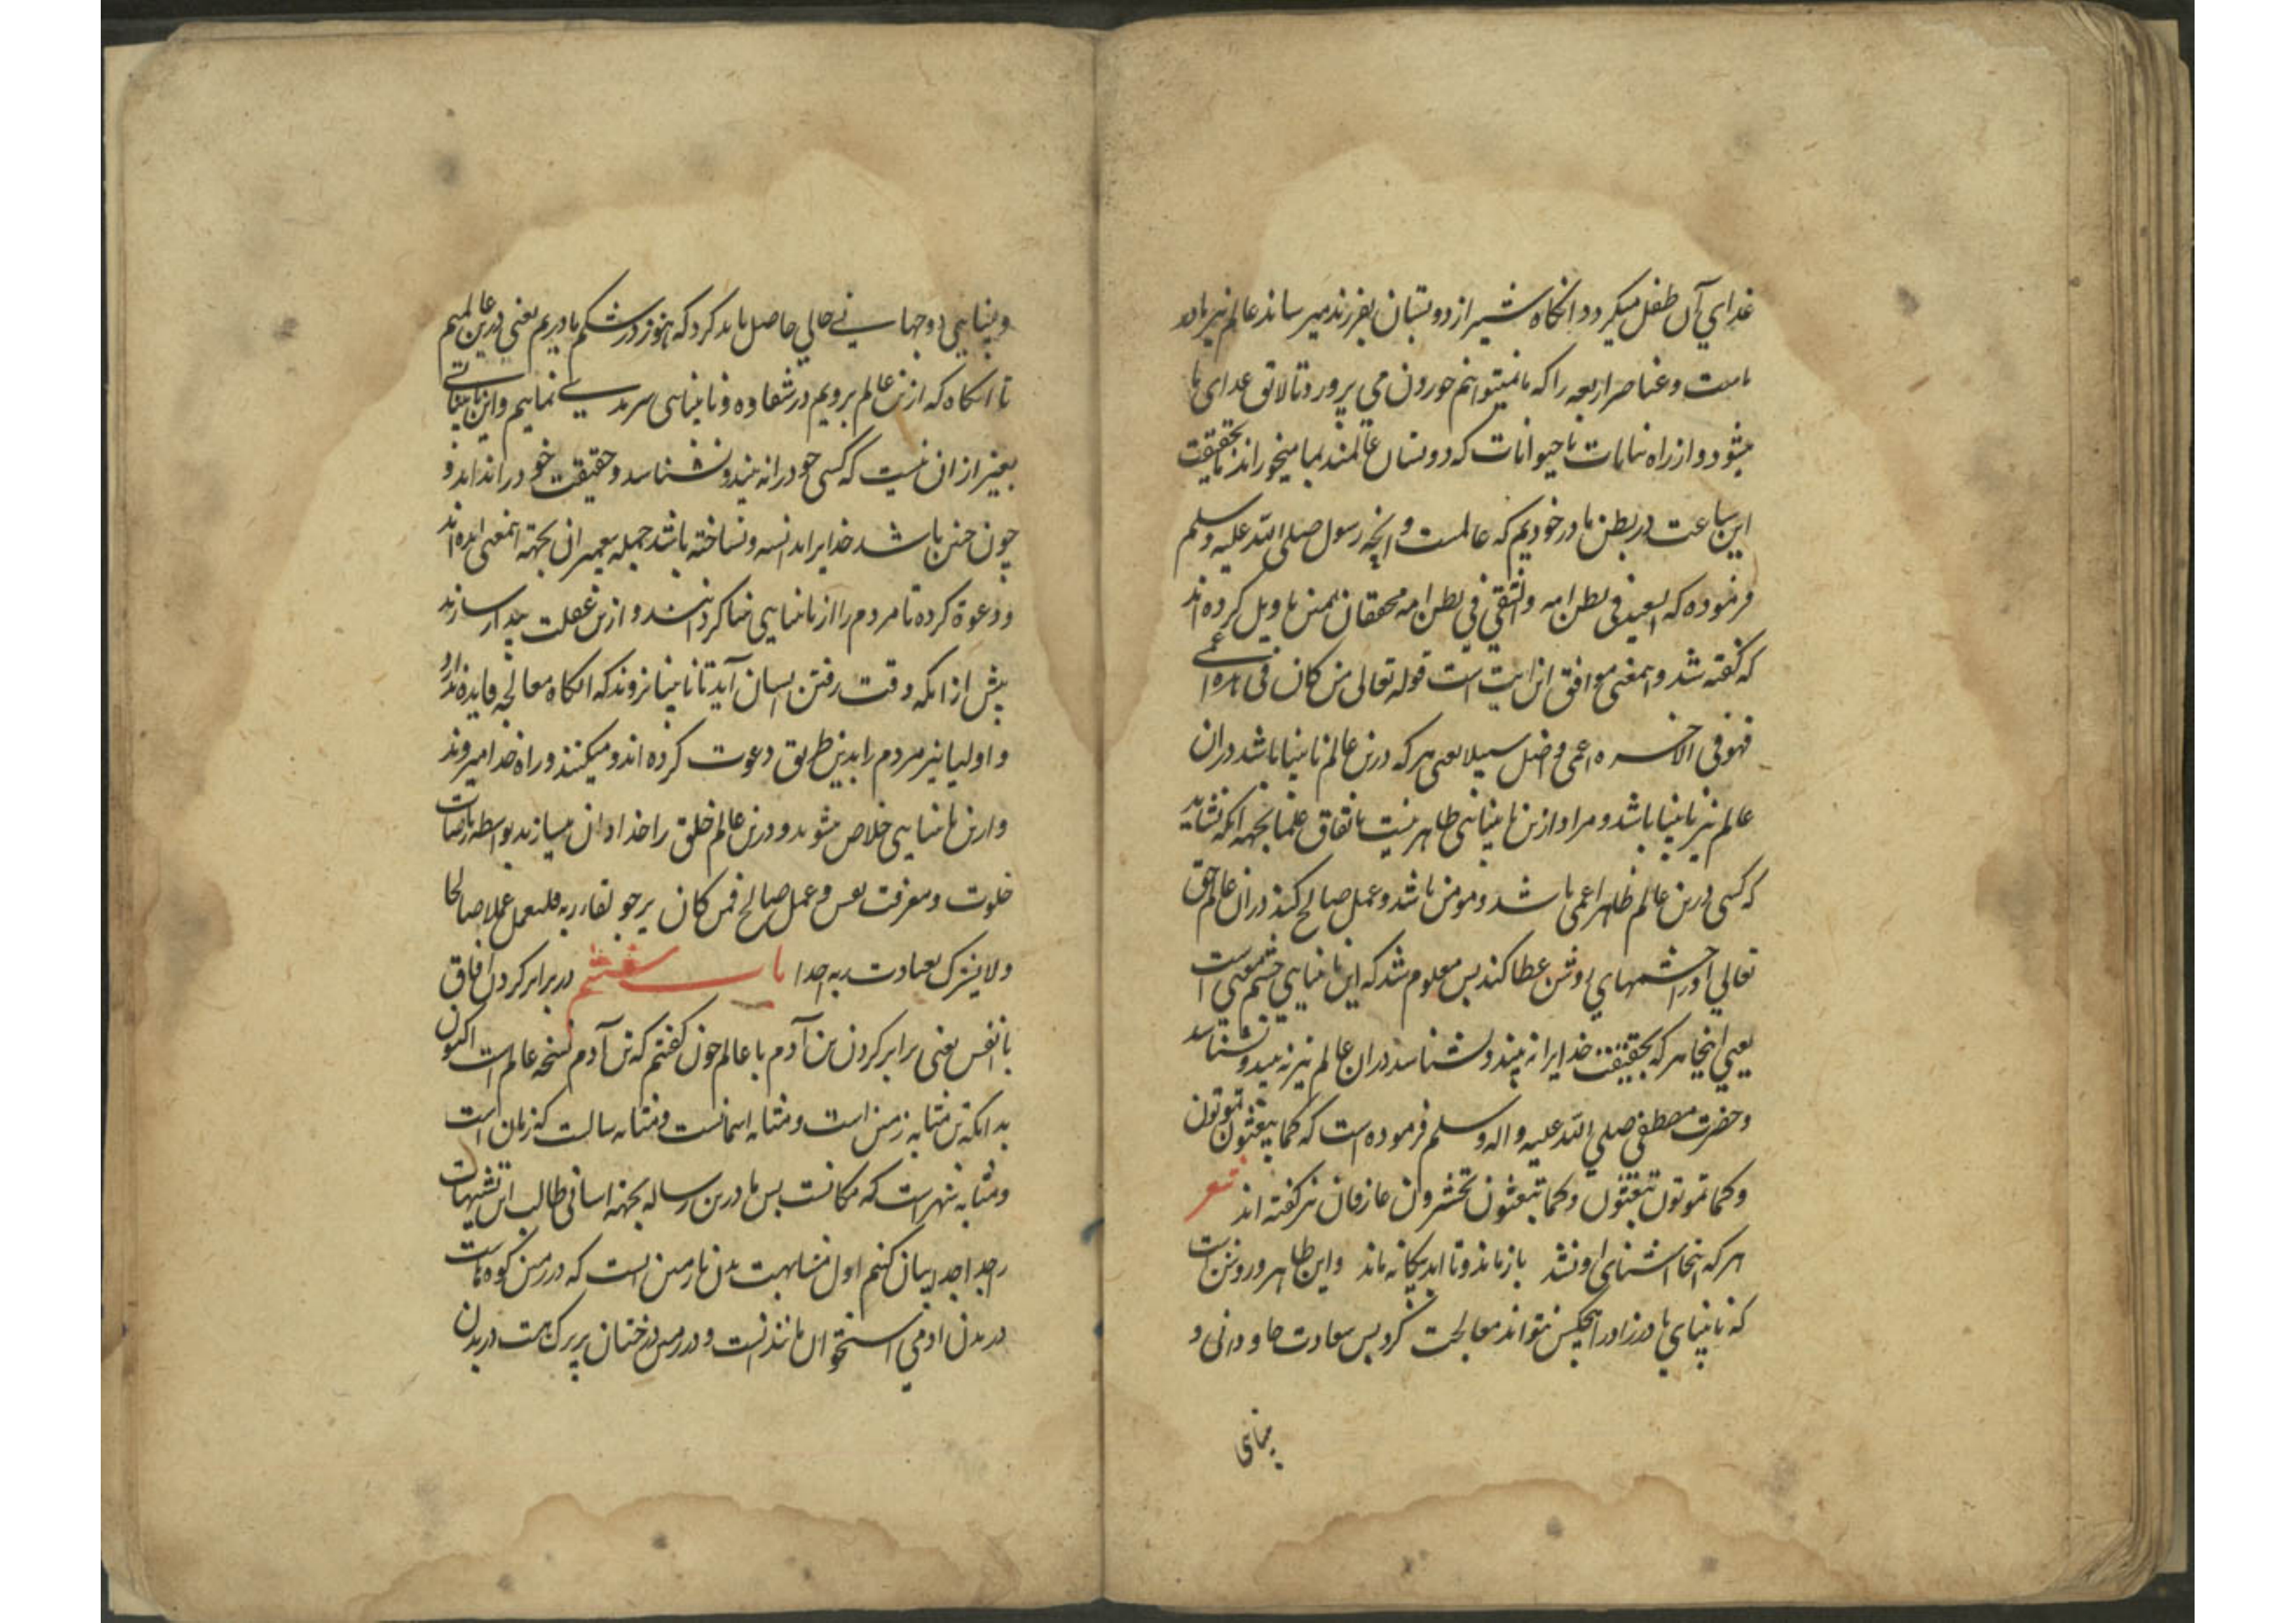 غدای آن طفل میکردد وانکاه شیر از دو پستان بفرزند میرساند عالم نیز مادر
ماست و عناصر اربعه را که ما نمیتوانیم خوردن می پرورد تا لایق غدای ما
میشود و از راه نباتات یا حیوانات که دو پستان عالمند بما میخوراند تا بحقیقت
این ساعت در بطن مادر خودیم که عالمست و انچه رسول صلی الله علیه وسلم
فرموده که السعید فی بطن امه والشقی فی بطن امه محققان همین تاویل کرده اند
که کفته شد و اینمعنی موافق این ایت است قوله تعالی من کان فی هذه اعمی
فهو فی الاخره اعمی و اضل سبیلا یعنی هر که درین عالم نابینا باشد دران
عالم نیز نابینا باشد و مراد ازین نابینایی ظاهر نیست باتفاق علما بجهه انکه شاید
که کسی درین عالم ظاهر اعمی باشد و مومن باشد و عمل صالح کند دران عالم حق
تعالی او را چشمهای روشن عطا کند پس معلوم شد که این نابینایی چشم معنی است
یعنی اینجا هر که بحقیقت خدایرا نه بیند و نشناسد دران عالم نیز نه بیند و نشناسد
و حضرت مصطفی صلی الله علیه واله وسلم فرموده است که کما تعیشون تموتون
و کما تموتون تبعثون و کما تبعثون تحشرون عارفان نیز کفته اند شعر
هر که اینجا اشنای او نشد باز ماند و تا ابد بیکانه ماند و این ظاهر و روشن است
که نابینای مادرزاد را هیچکس نتواند معالجت کرد پس سعادت جاودانی و
بینایی
و بینایی دوجهانی حالی حاصل باید کرد که هنوز در شکم مادریم یعنی درین عالمیم
تا انکاه که ازین عالم برویم در شقاوه و نابینایی سرمدی نمانیم و این نابینایی
بغیر از ان نیست که کسی خود را نه بیند و نشناسد و حقیقت خود را نداند و
چون چنین باشد خدایرا ندانسته و نشناخته باشد جمله پیغمبران بجهه اینمعنی امده اند
و دعوة کرده تا مردم را از نابینایی بینا کردانند و ازین غفلت بیدار سازند
پیش از انکه وقت رفتن ایشان آید تا نابینا نروند که انکاه معالجه فایده ندارد
و اولیا نیز مردم را بدین طریق دعوت کرده اند و میکنند و راه خدا میروند
و ازین نابینایی خلاص میشوند و درین عالم خلق را خدادان میسازند بواسطه ریاضات
خلوت و معرفت نفس و عمل صالح فمن کان یرجو لقاء ربه فلیعمل عملا صالحا
ولا یشرک بعبادت ربه احدا باب هفتم در برابر کردن آفاق
با انفس یعنی برابر کردن تن آدم با عالم چون کفتیم که تن آدم نسخه عالم است اکنون
بدانکه تن مشابه زمین است و مشابه اسمانست و مشابه سالست که زمان است
و مشابه شهر است که مکانست پس ما درین رساله بجهه اسانی طالب این تشبیهات
را جدا جدا بیان کنیم اول مشابهت بدن با زمین است که در زمین کوه هاست
در بدن ادمی استخوان مانند انست و در زمین درختان پر برک هست در بدن